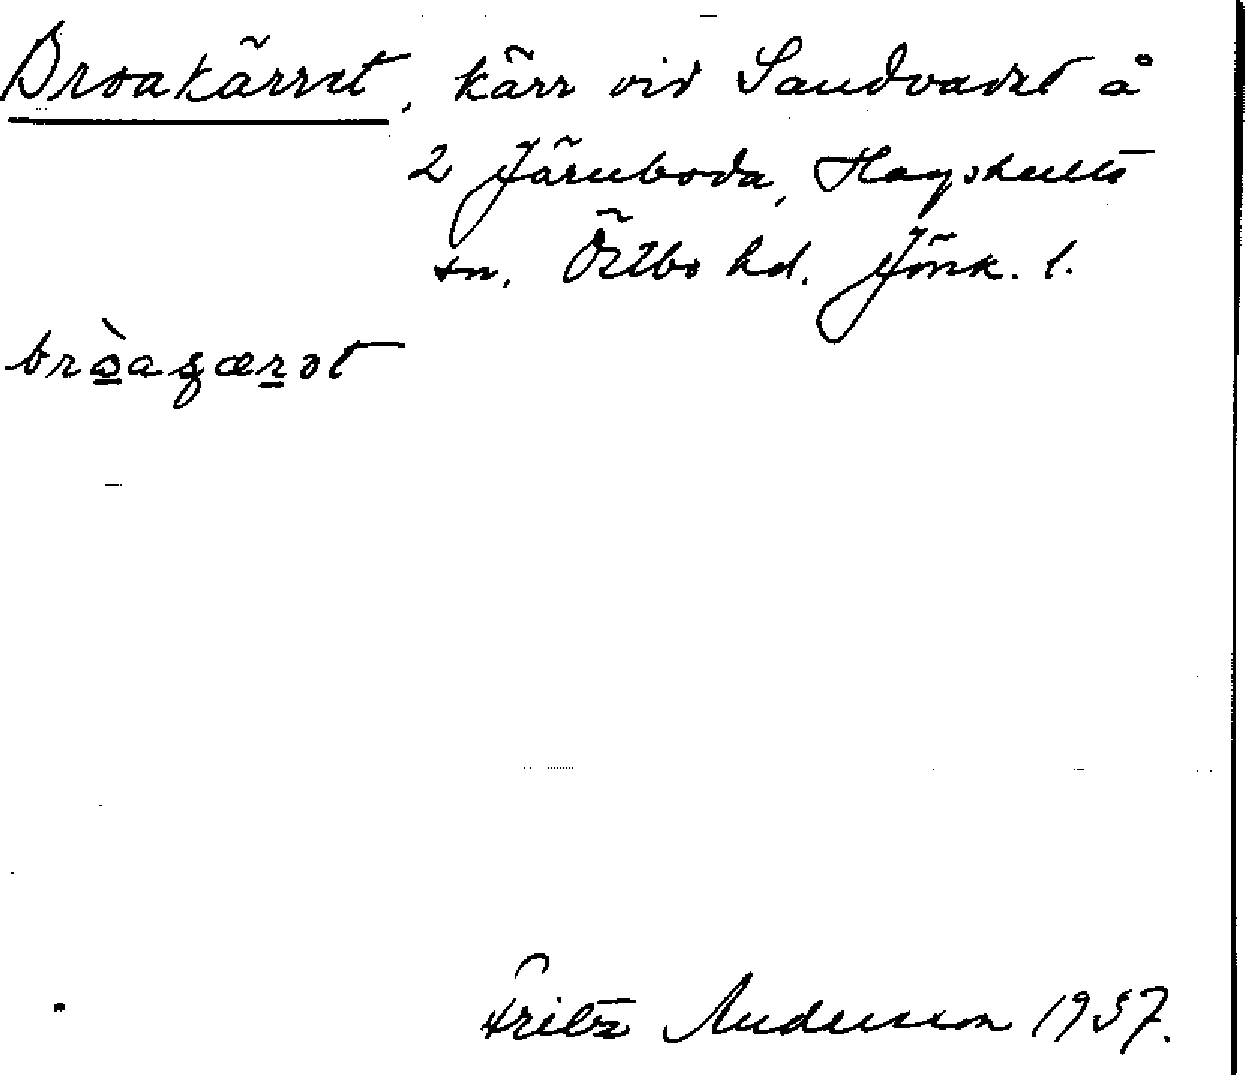 Broakärret, kärr vid Sandvadet å
2 Järnboda, Hagshults
sn. Östbo hd. Jönk. l.
Fritz Andersson 1957.